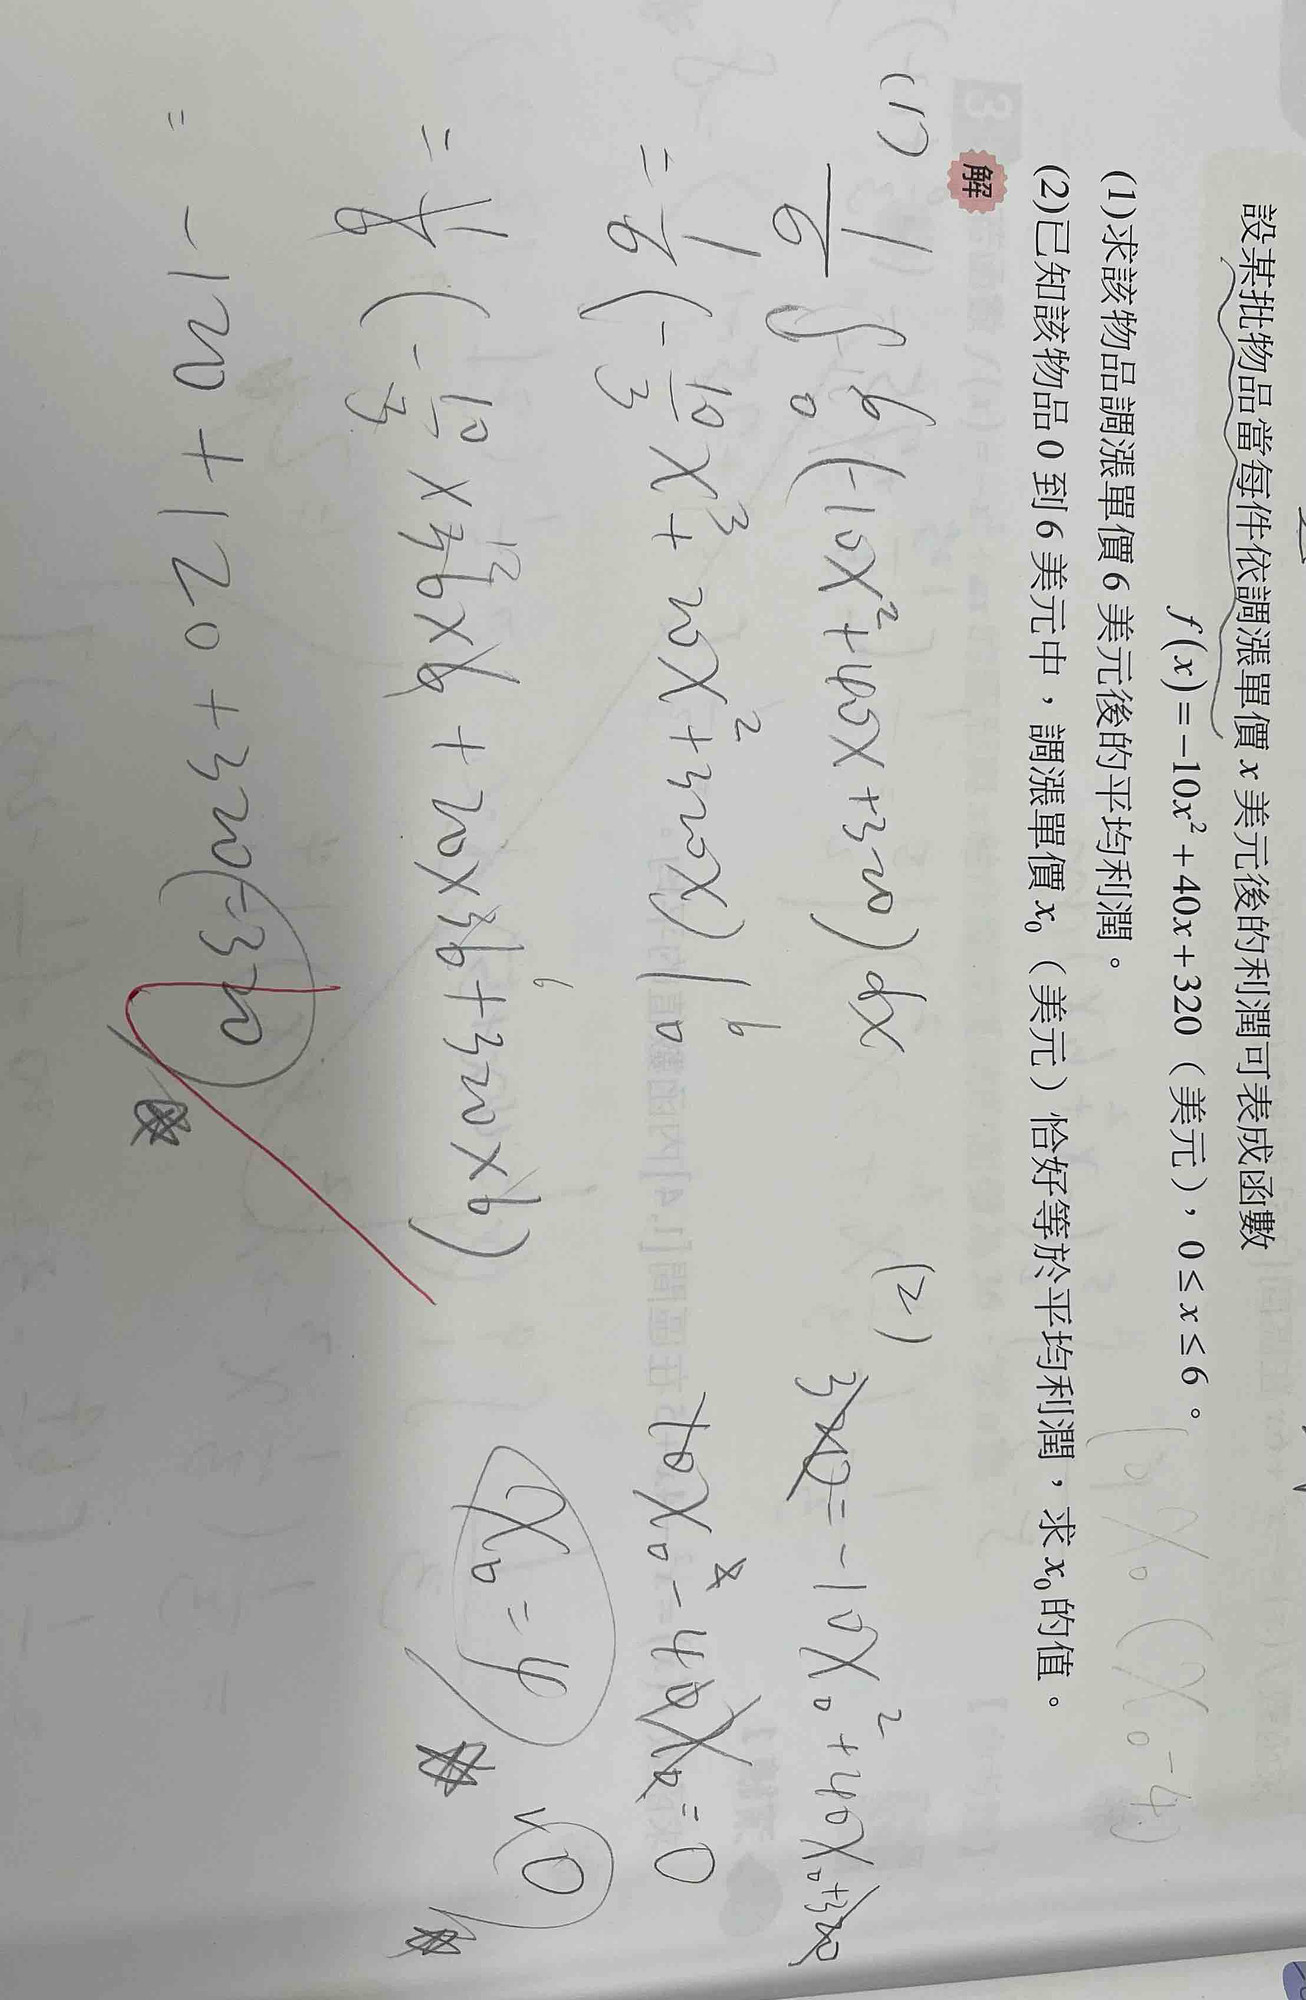 設某批物品當每件依調漲單價 x 美元後的利潤可表成函數
f(x)=−10x²+40x+320（美元），0≤x≤6。
(1)求該物品調漲單價 6 美元後的平均利潤。
(2)已知該物品 0 到 6 美元中，調漲單價 x₀（美元）恰好等於平均利潤，求 x₀ 的值。
解
(1) 1/6 ∫₀⁶ (−10x²+40x+320)dx
= 1/6 (−10/3 x³ + 20x² + 320x) |₀⁶
= 1/6 (−10/3 × 36 × 6 + 20 × 36 + 320 × 6)
= −120 + 120 + 320 = 320
(2) 320 = −10x₀² + 40x₀ + 320
10x₀² − 40x₀ = 0
x₀ = 4 v 0
10x₀(x₀−4)